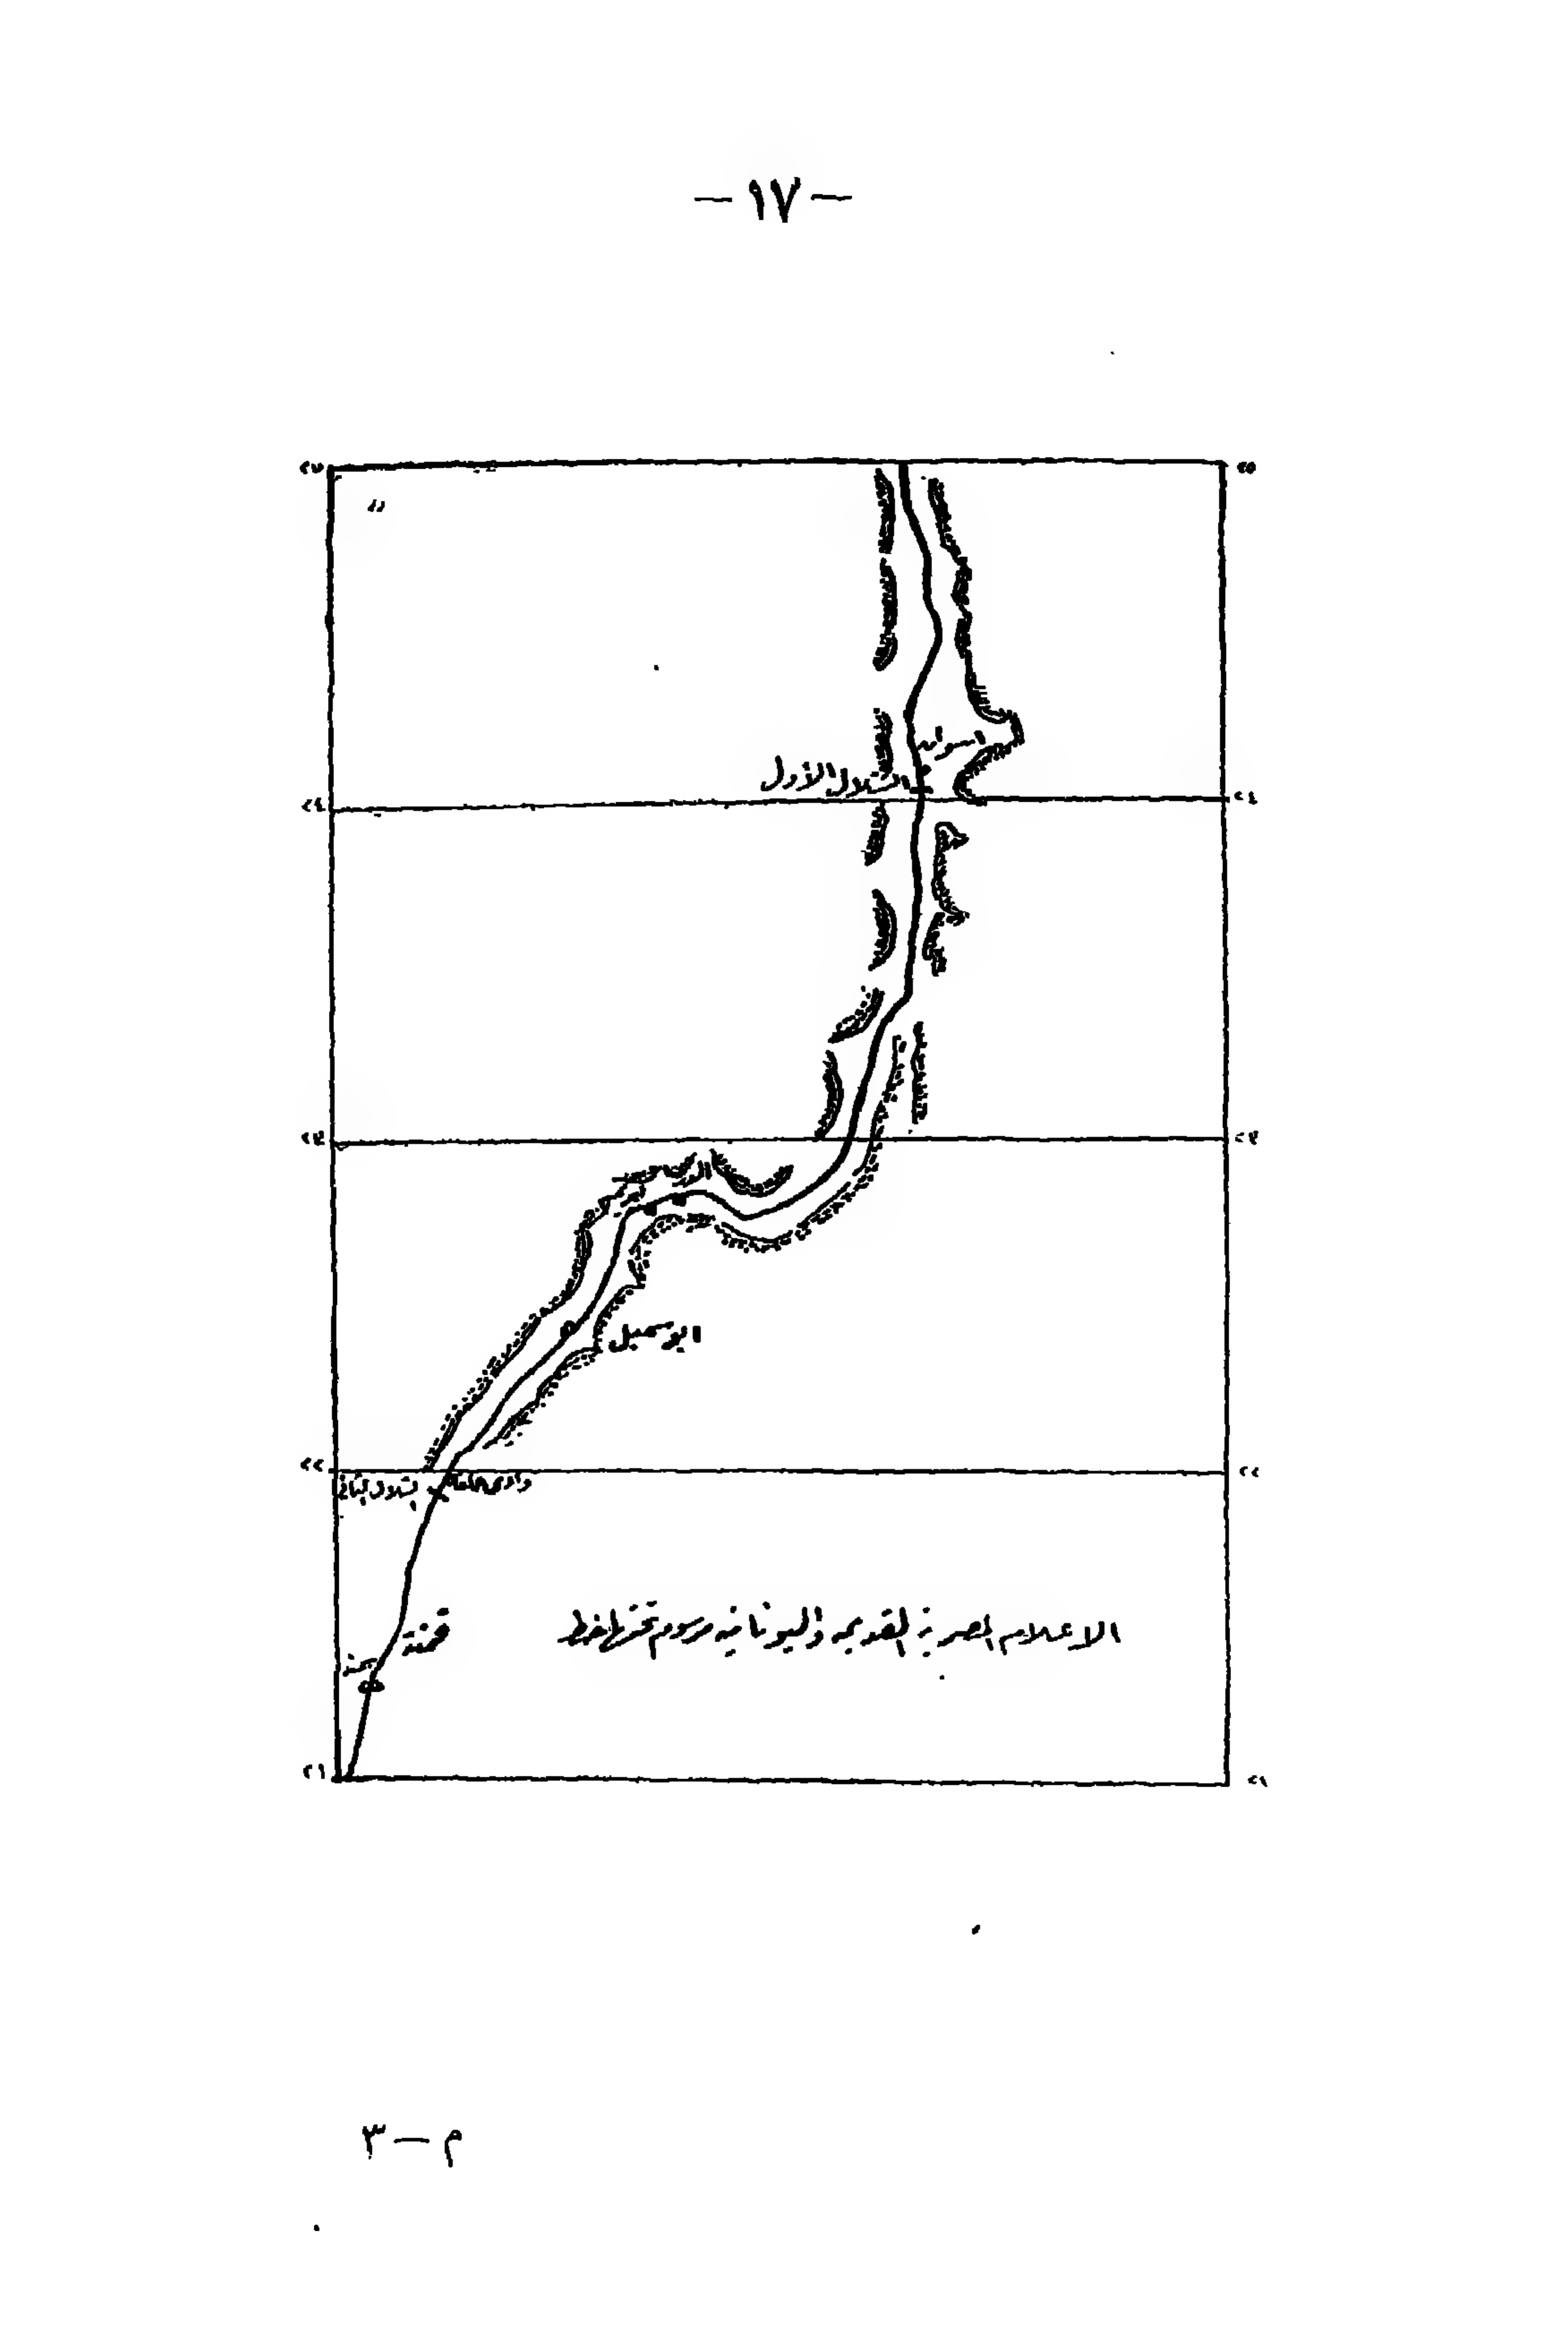 — ١٧ —
٢٥
٢٤
٢٣
٢٢
٢١
اسوان
الشلال الأول
ابو سمبل
وادي حلفا
الشلال الثاني
قمنة
سمنة
الاعلام المصرية القديمه واليونانيه مرسوم تحتها خط
م — ٣